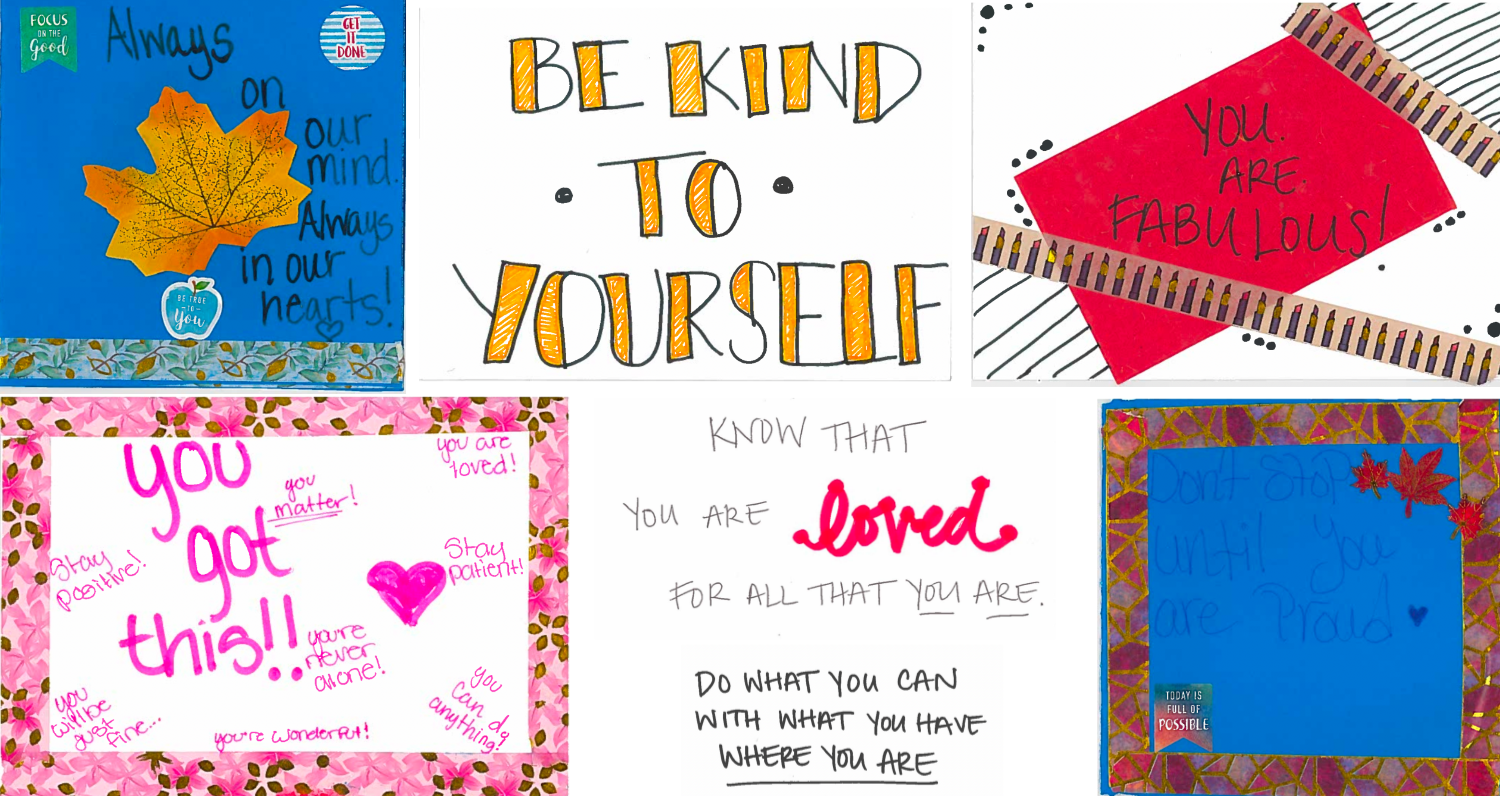 FOCUS
ON THE
Good
GET
IT
DONE
Always
on
our
mind.
Always
in our
hearts!
BE TRUE
-TO-
You
BE KIND
• TO •
YOURSELF
YOU.
ARE.
FABULOUS!
you
got
this!!
you are
loved!
you
matter!
Stay
positive!
Stay
patient!
you're
never
alone!
you
will be
just
fine...
you're wonderful!
you
can do
anything!
KNOW THAT
YOU ARE loved
FOR ALL THAT YOU ARE.
DO WHAT YOU CAN
WITH WHAT YOU HAVE
WHERE YOU ARE
Don't Stop
until you
are Proud
TODAY IS
FULL OF
POSSIBLE